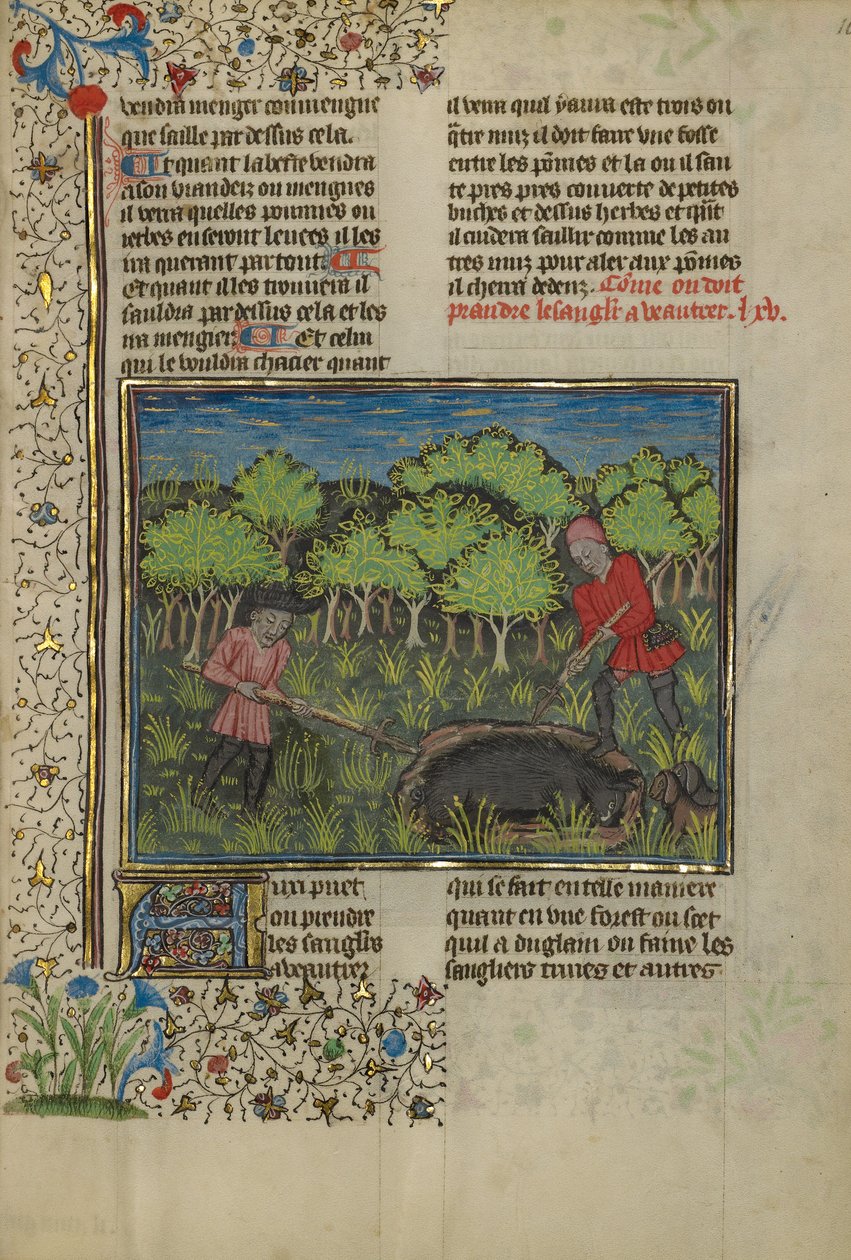 vendra menger conviengne
que saille par dessus cela.
Et quant la beste vendra
a son viandeiz ou mengues
il verra quelles pommes ou
ierbes en seront leuees il les
ira querant par tout.
Et quant il les trouuera il
sauldra par dessus cela et les
ira mengier. Et celui
qui le vouldra chacier quant
il verra quil y aura este trois ou
q̄tre nuiz il doit faire vne fosse
entre les pōmes et la ou il sau
te pres pres couuerte de petites
buches et dessus herbes et quāt
il cuidera saillir comme les au
tres nuiz pour aler aux pōmes
il cherra dedenz. Cōme on doit
prandre le sanglr̄ a veautrer. lxv.
Auxi puet
on prendre
les sangliers
a veautrer
qui se fait en telle maniere
quant en vne forest ou scet
quil a du glan ou faine les
sangliers truies et autres